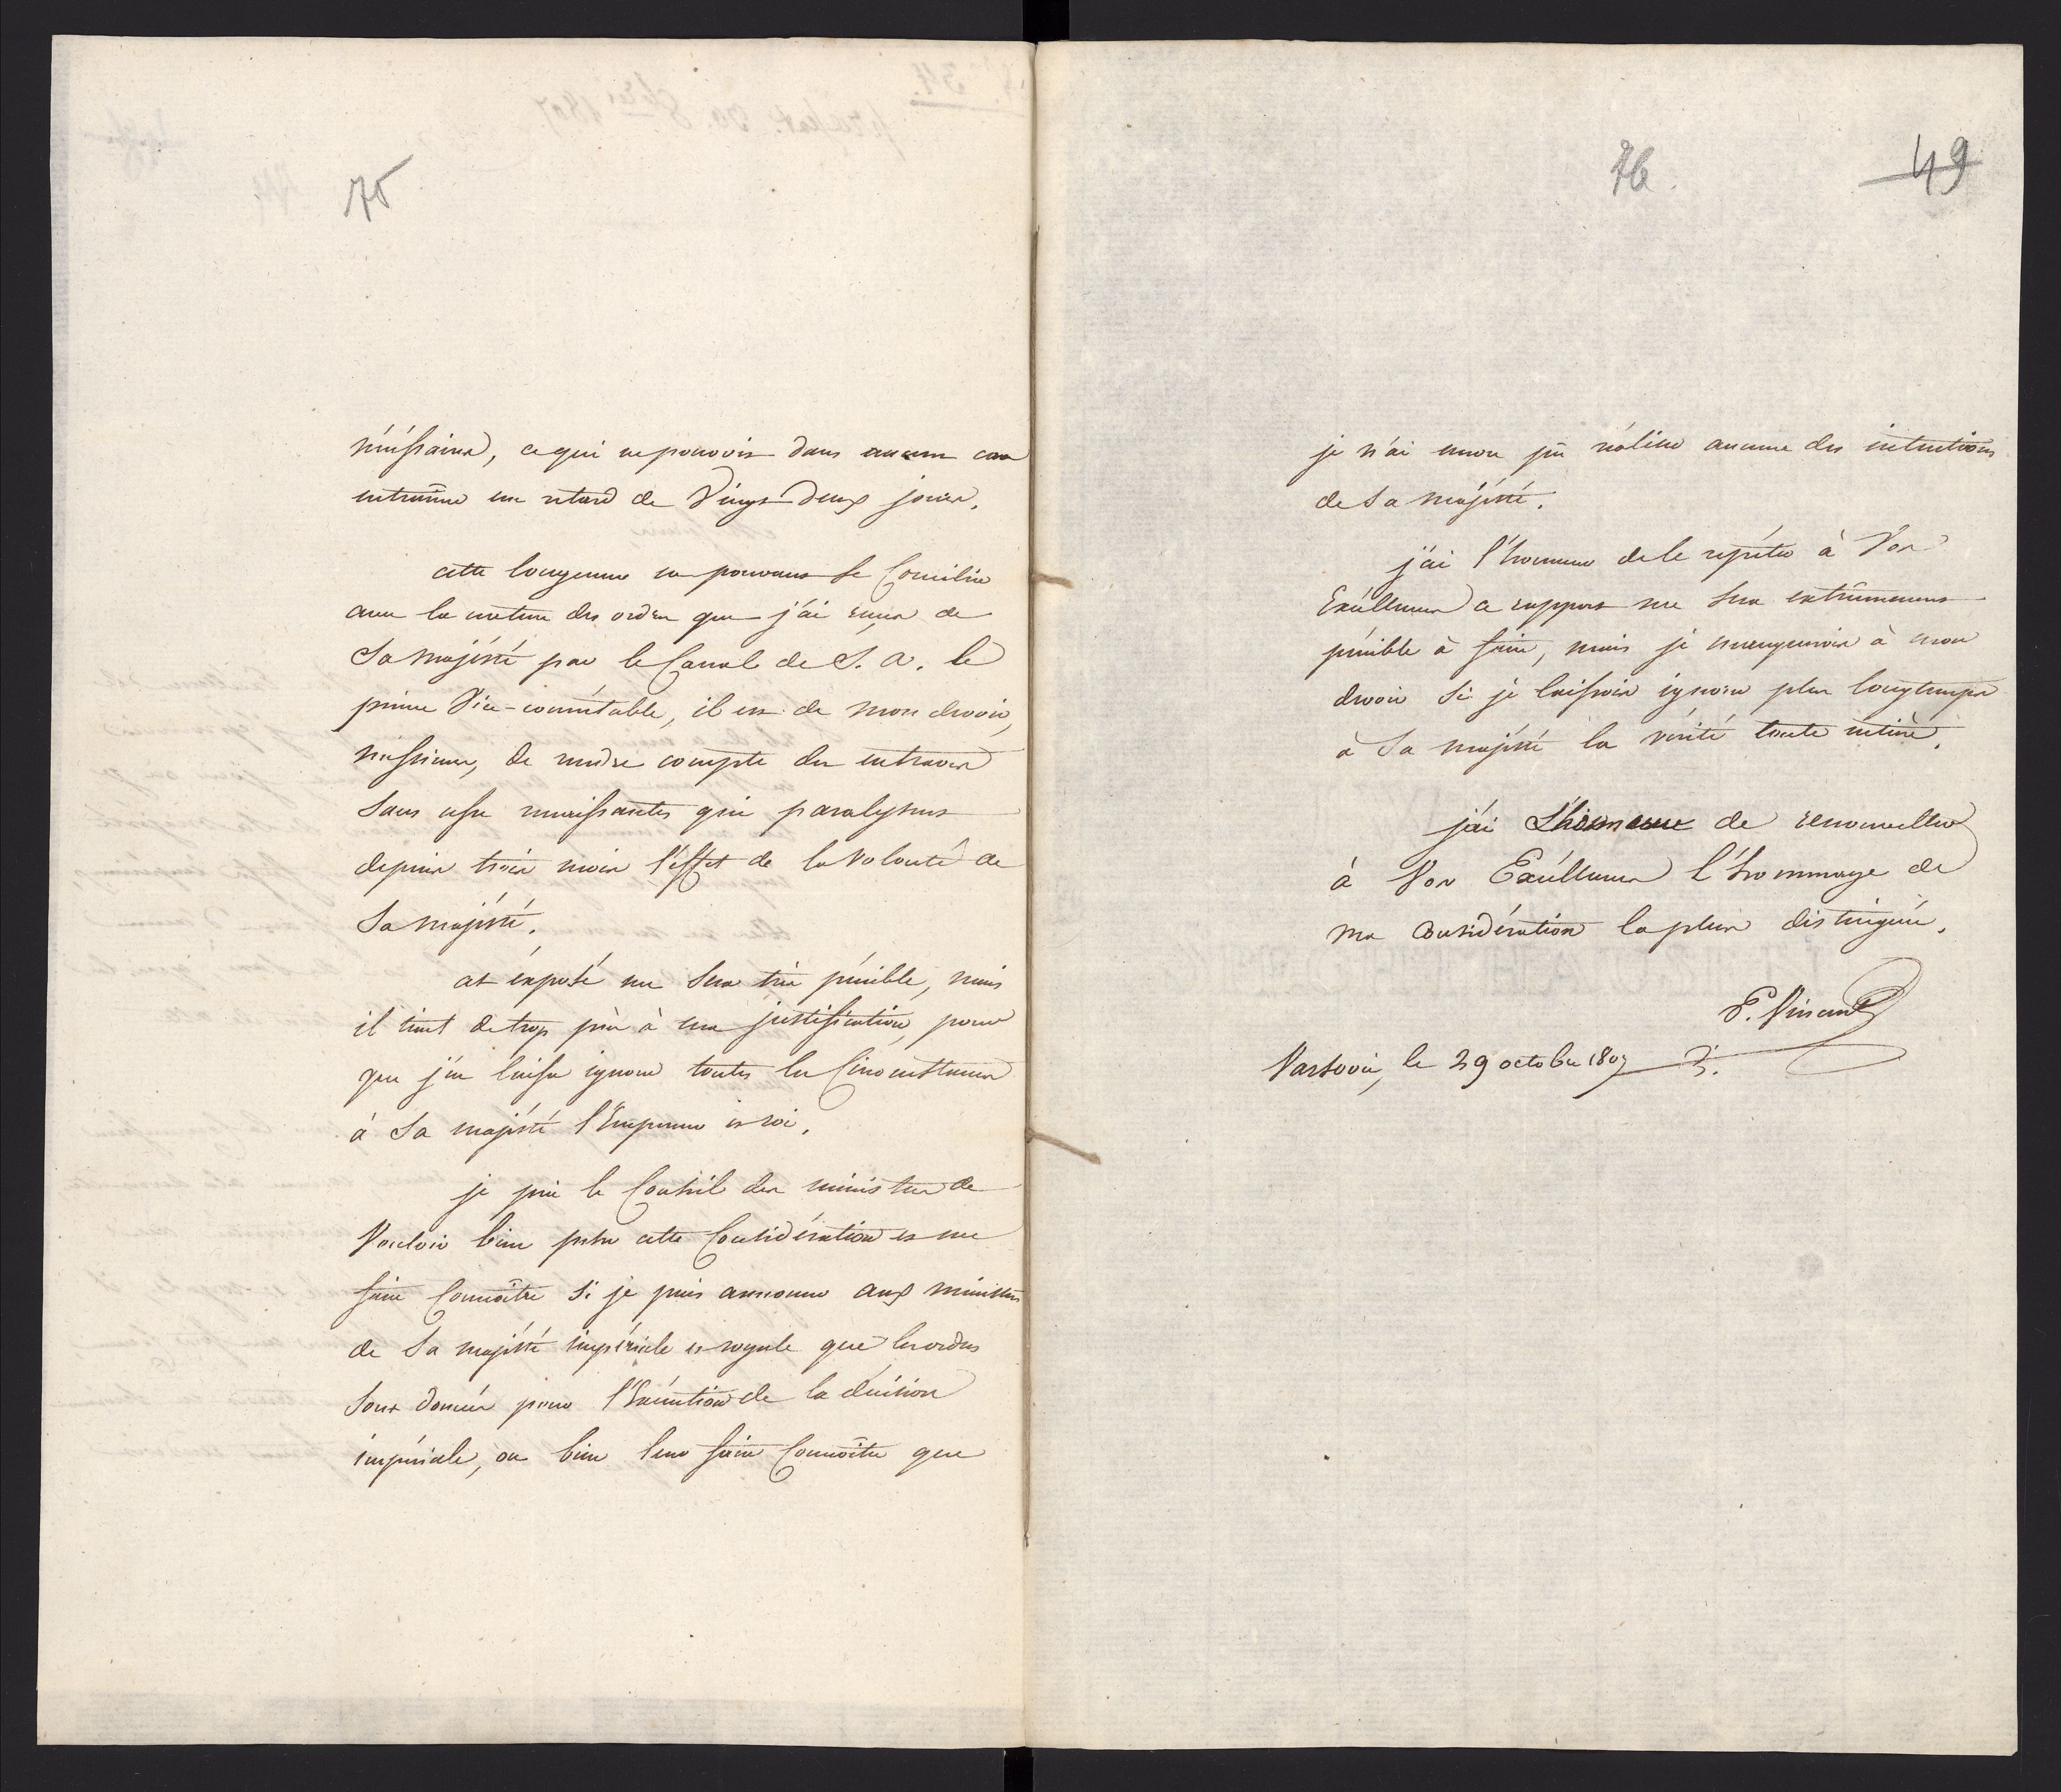 75
nécéssaires, ce qui ne pouvoit dans aucun cas
entraîner un retard de Vingt Deux jours.
cette longueur ne pouvant se Concilier
avec la nature des ordres que j'ai reçus de
Sa Majésté par le Canal de S. A. le
prince Vice-connétable, il est de mon devoir,
messieurs, de rendre compte des entraves
sans cesse renaissantes qui paralysent
depuis trois mois l'éffet de la Volonté de
Sa Majésté.
cet éxposé me sera très pénible, mais
il tient de trop près à ma justification, pour
que j'en laisse ignorer toutes les Circonstances
à Sa majésté l'Empereur et roi.
je prie le Conseil des ministres de
Vouloir bien peser cette Considération et me
faire Connoître si je puis annoncer aux ministres
de Sa majésté impériale et royale que les ordres
sont donnés pour l'Exécution de la décision
impériale, ou bien leur faire Connoître que
76.
49
je n'ai encore pû réaliser aucune des intentions
de Sa Majésté.
j'ai l'honneur de le répéter à Vos
Excéllences ce rapport me sera extrêmement
pénible à faire, mais je manquerois à mon
devoir si je laissois ignorer plus longtemps
à Sa majésté la vérité toute entière.
j'ai L'honneur de renouveller
à Vos Excéllences l'hommage de
ma Considération la plus distinguée.
E. Vincent
Varsovie, le 29 octobre 1807